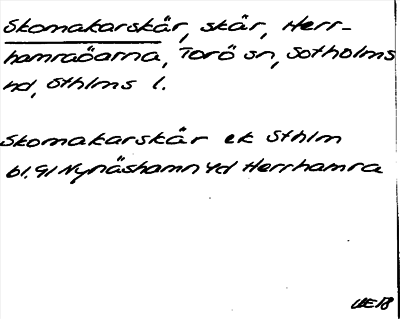 Skomakarskär, skär, Herr-
hamraöarna, Torö sn, Sotholms
hd, Sthlms l.
Skomakarskär ek Sthlm
bl. 91 Nynäshamn Yd Herrhamra